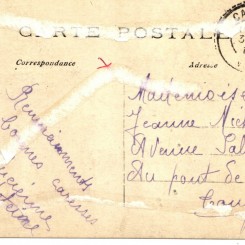 CARTE POSTALE
Correspondance
Adresse
Remerciements
bonnes caresses
Mademoise
Jeanne Mich
Avenue Pal
Au pont de